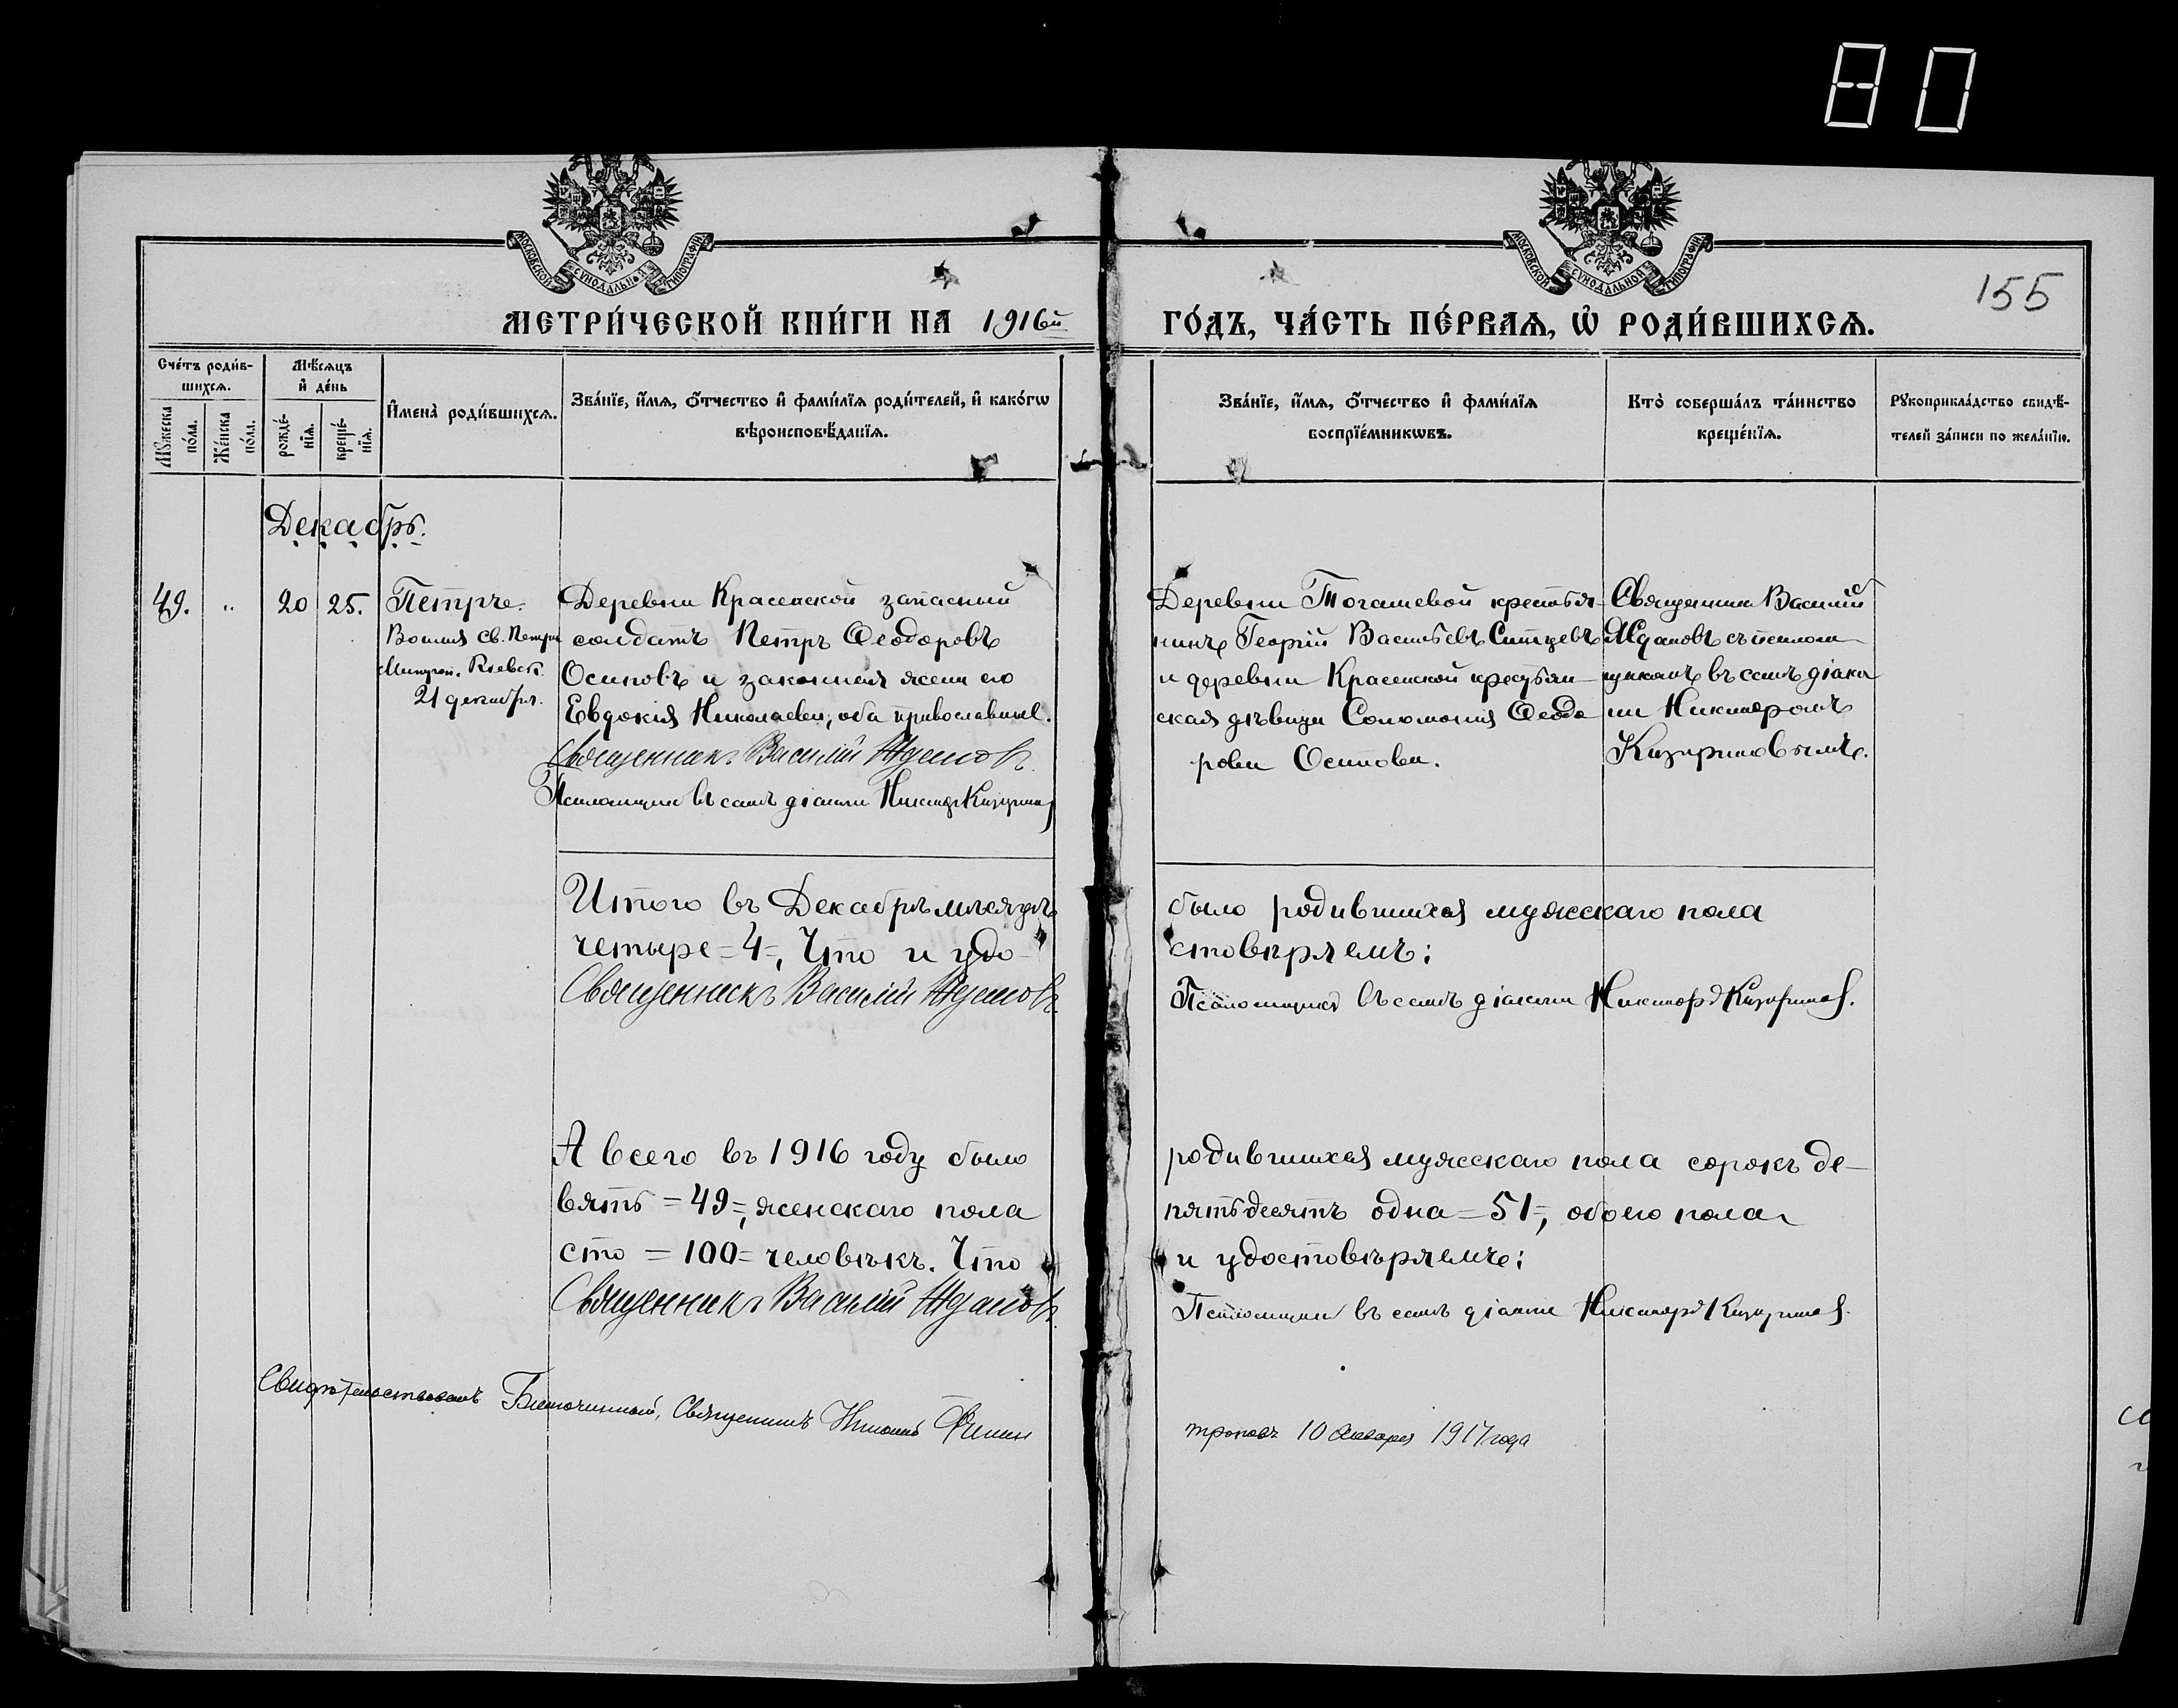 80
МОСКОВСКОЙ СѴНОДАЛЬНОЙ ТИПОГРАФІИ
МОСКОВСКОЙ СѴНОДАЛЬНОЙ ТИПОГРАФІИ
155
МЕТРИ́ЧЕСКОЙ КНИ́ГИ НА 1916й ГО́ДЪ, ЧА́СТЬ ПЕ́РВАѦ, Ѡ҆ РОДИ́ВШИХСѦ.
Сче́тъ роди́в-
шихсѧ.
Мꙋ́жеска по́ла.
Же́нска по́ла.
Мѣ́сѧцъ
и҆ де́нь
рожде́-
нїѧ.
креще́-
нїѧ.
И҆мена̀ роди́вшихсѧ.
Зва́нїе, и҆́мѧ, ѻ҆́тчество и҆ фами́лїѧ роди́телей, и҆ како́гѡ
вѣроисповѣ́данїѧ.
Зва́нїе, и҆́мѧ, ѻ҆́тчество и҆ фами́лїѧ
воспрїе́мникѡвъ.
Кто̀ соверша́лъ та́инство
креще́нїѧ.
Рꙋкоприкла́дство свидѣ́-
телей за́писи по жела́нїю.
Декабрь.
49.
"
20
25.
Петръ.
Во имя св. Петра
Митроп. Кіевск.
21 декабря.
Деревни Красенской запасный
солдатъ Петръ Ѳеодоровъ
Осиповъ и законная жена его
Евдокія Николаева, оба православные.
Священникъ Василій Ждановъ.
Псаломщикъ въ санѣ діакона Никаноръ Казариновъ
Деревни Тогашевой крестья-
нинъ Георгій Васильевъ Ситцевъ
и деревни Красенской крестьян-
ская дѣвица Соломонія Ѳеодо
рова Осипова.
Священникъ Василій
Ждановъ съ псалом
щикомъ въ санѣ діако
на Никаноромъ
Казариновымъ.
Итого въ Декабрѣ мѣсяцѣ было родившихся мужескаго пола
четыре =4=, Что и удо стовѣряемъ:
Священникъ Василій Ждановъ
Псаломщикъ въ санѣ діакона Никаноръ Казариновъ.
А всего въ 1916 году было родившихся мужескаго пола сорокъ де-
вять =49=, женскаго пола пятьдесятъ одна =51=, обоего пола
сто =100= человѣкъ. Что и удостовѣряемъ:
Священникъ Василій Ждановъ
Псаломщикъ въ санѣ діакона Никаноръ Казариновъ.
Свидѣтельствовалъ Благочинный, Священникъ
троповъ 10 Января 1917 года